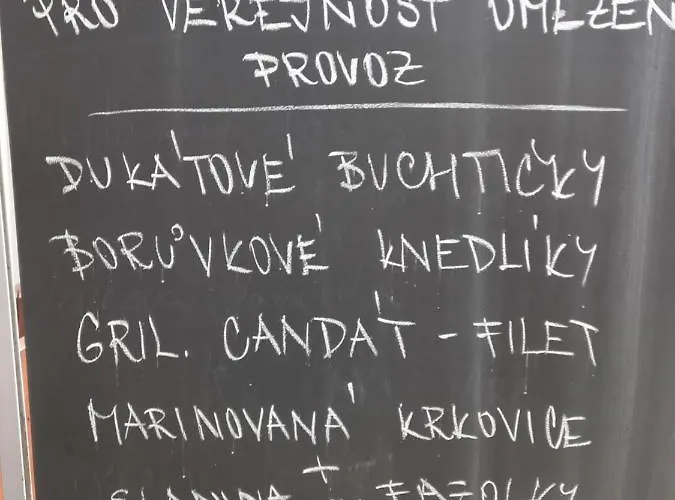 PRO VEŘEJNOST OMEZEN
PROVOZ
DUKÁTOVÉ BUCHTIČKY
BORŮVKOVÉ KNEDLÍKY
GRIL. CANDÁT - FILET
MARINOVANÁ KRKOVICE
+
SLANINA FAZOLKY